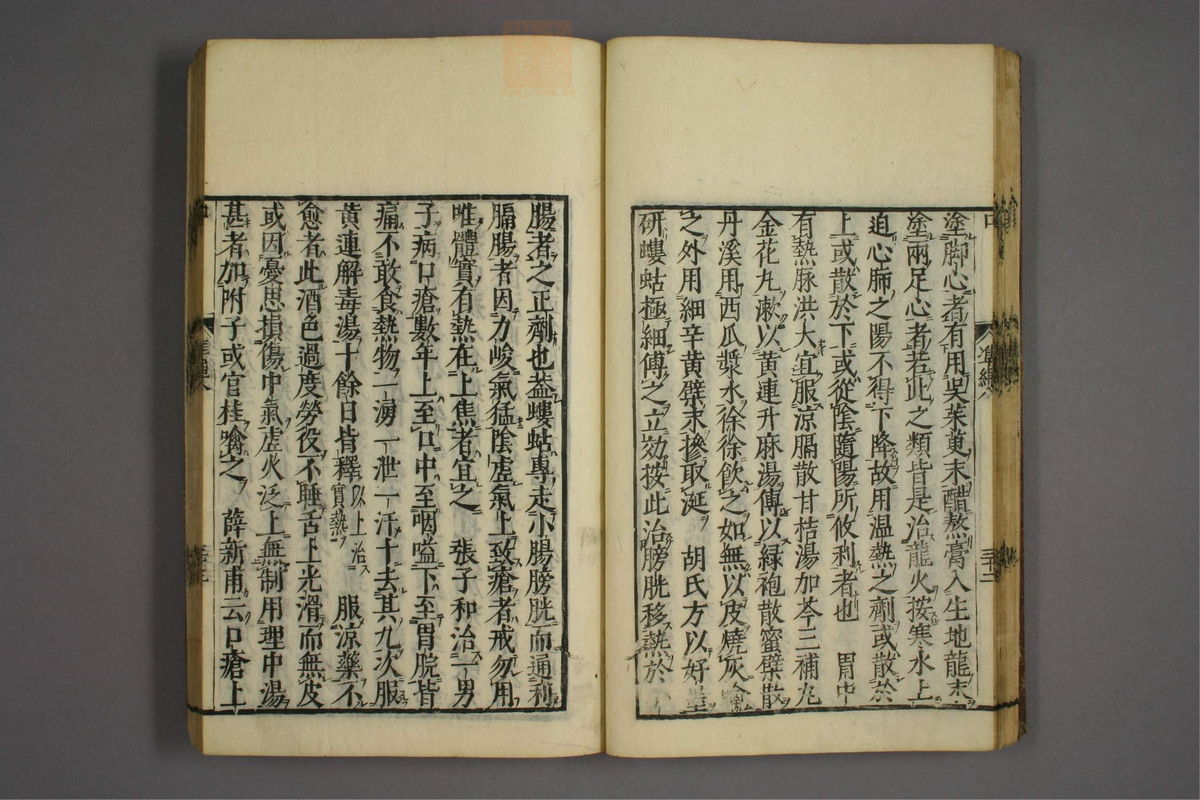 塗脚心者有用吳茱萸末醋熬膏入生地龍末
塗兩足心者若此之類皆是治龍火按寒水上
迫心肺之陽不得下降故用温熱之劑或散於
上或散於下或從陰隨陽所攸利者也　胃中
有熱脉洪大宜服凉膈散甘桔湯加芩三補丸
金花丸漱以黄連升麻湯傅以緑袍散蜜檗散
丹溪用西瓜漿水徐徐飲之如無以皮燒灰噙
之外用細辛黄檗末摻取涎　胡氏方以好墨
研螻蛄極細傅之立効按此治膀胱移熱於小
腸者之正劑也盖螻蛄專走小腸膀胱而通利
膈腸者因力峻氣猛陰虚氣上致瘡者戒勿用
唯體實有熱在上焦者宜之　張子和治一男
子病口瘡數年上至口中至咽嗌下至胃脘皆
痛不敢食熱物一湧一泄一汗十去其九次服
黄連解毒湯十餘日皆釋以上治實熱　服凉藥不
愈者此酒色過度勞役不睡舌上光滑而無皮
或因憂思損傷中氣虚火泛上無制用理中湯
甚者加附子或官桂噙之　薛新甫云口瘡上